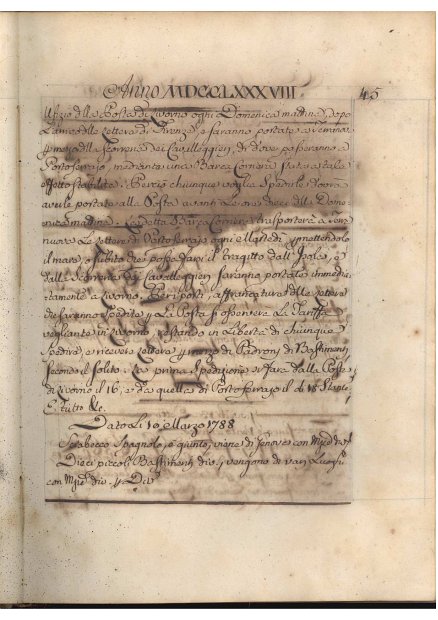 Anno MDCCLXXXVIII 45
Ufizio dlla Posta di Livorno ogni Domenica mattina, dopo
l'arrivo dlle lettere di Firenze, e saranno portate a
mezzo dlla Scorrenza dei Cavalleggieri, di dove passeranno a
Portoferrajo, mediante una Barca Corriera stata a tale
effetto stabilita. Perciò chiunque voglia Spedirle dovrà
averle portate alla Posta avanti le ore dieci dlla Dome-
nica mattina. La detta Barca Corriera trasporterà
nuovo Le lettere di Portoferrajo ogni Martedì
il mare, e subito die dal tragitto dall' Isola, e
dalla Scorrenza dei Cavalleggieri saranno portate immedia-
tamente a Livorno. Per i porti, e affrancatura dlle lettere
che saranno Spedite p La Posta si osserverà La Tariffa
vegliante in Livorno restando in Libertà di chiunque
Spedire, e ricevere lettere p mezzo di Padroni di Bastimenti
secondo il solito. La prima Spedizione si farà dalla Posta
di Livorno il 16, e da quella di Portoferrajo il dì 18 Stante
E tutto &c.
Dato Li 10 Marzo 1788
Sciabecco Spagnolo è giunto, viene di Genova con
Dieci piccoli Bastimenti div. vengono di varj Luoghi
con div. p Divi